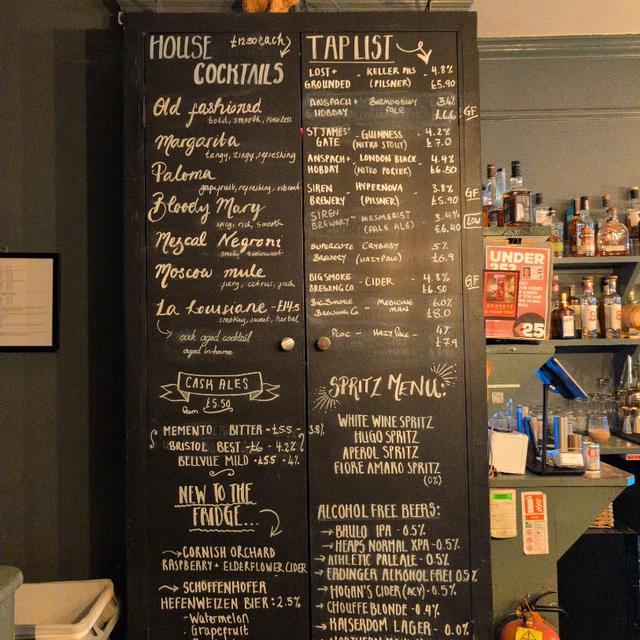 HOUSE £12.50 each
COCKTAILS
Old fashioned
bold, smooth, timeless
Margarita
tangy, zingy, refreshing
Paloma
grapefruit, refreshing, vibrant
Bloody Mary
spicy, rich, smooth
Mezcal Negroni
smoky, bittersweet
Moscow mule
fiery, citrus, fresh
La Louisiane - £14.5
smokey, sweet, herbal
oak aged cocktail
aged in-house
CASK ALES
£5.50
MEMENTO BITTER - £5.5 - 3.8%
BRISTOL BEST - £6 - 4.2%
BELLVUE MILD - £5.5 - 4%
NEW TO THE
FRIDGE...
→ CORNISH ORCHARD
RASPBERRY + ELDERFLOWER CIDER
→ SCHÖFFENHOFER
HEFENWEIZEN BIER: 2.5%
- Watermelon
- Grapefruit
TAP LIST
LOST + - KELLER PILS - 4.8%
GROUNDED (PILSNER) £5.90
ANSPACH + - BERMONDSEY - 3.4%
HOBDAY PALE £6.6 GF
ST JAMES' - GUINNESS - 4.2%
GATE (NITRO STOUT) £7.0
ANSPACH + - LONDON BLACK - 4.4%
HOBDAY (NITRO PORTER) £6.80
SIREN - HYPERNOVA - 3.8% GF
BREWERY (PILSNER) £5.90
SIREN - MESMERIST - 3.4% LOW
BREWERY (PALE ALE) £6.40
SUPERCUTE - CRYBABY 5%
BREWERY (HAZY PALE) £6.9
BIG SMOKE - CIDER - 4.8% GF
BREWING CO. £6.50
BIG SMOKE - MEDICINE - 6.0%
BREWING CO. MAN £8.0
PLOC - HAZY PALE - 4%
£7.9
SPRITZ MENU:
WHITE WINE SPRITZ
HUGO SPRITZ
APEROL SPRITZ
FIORE AMARO SPRITZ
(0%)
ALCOHOL FREE BEERS:
→ BRULO IPA - 0.5%
→ HEAPS NORMAL XPA - 0.5%
→ ATHLETIC PALE ALE - 0.5%
→ ERDINGER ALKOHOL FREI 0.5%
→ HOGAN'S CIDER (ACV) - 0.5%
→ CHOUFFE BLONDE - 0.4%
→ KAISERDOM LAGER - 0.0%
UNDER
25?
25